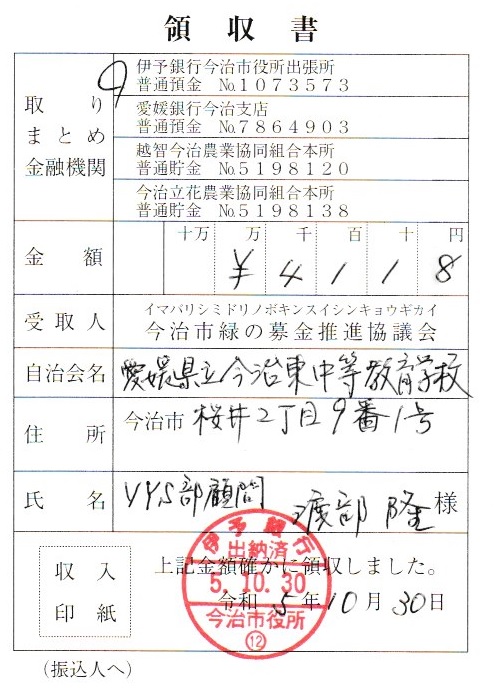 領収書
取り
まとめ
金融機関
伊予銀行今治市役所出張所
普通預金 №1073573
愛媛銀行今治支店
普通預金 №7864903
越智今治農業協同組合本所
普通貯金 №5198120
今治立花農業協同組合本所
普通貯金 №5198138
金額
十万 万 千 百 十 円
¥ 4 1 1 8
受取人
イマバリシミドリノボキンスイシンキョウギカイ
今治市緑の募金推進協議会
自治会名
愛媛県立今治東中等教育学校
住所
今治市 桜井2丁目9番1号
氏名
VYS部顧問 渡部 隆 様
収入
印紙
上記金額確かに領収しました。
令和 5年10月30日
伊予銀行
出納済
5.10.30
今治市役所
⑫
(振込人へ)